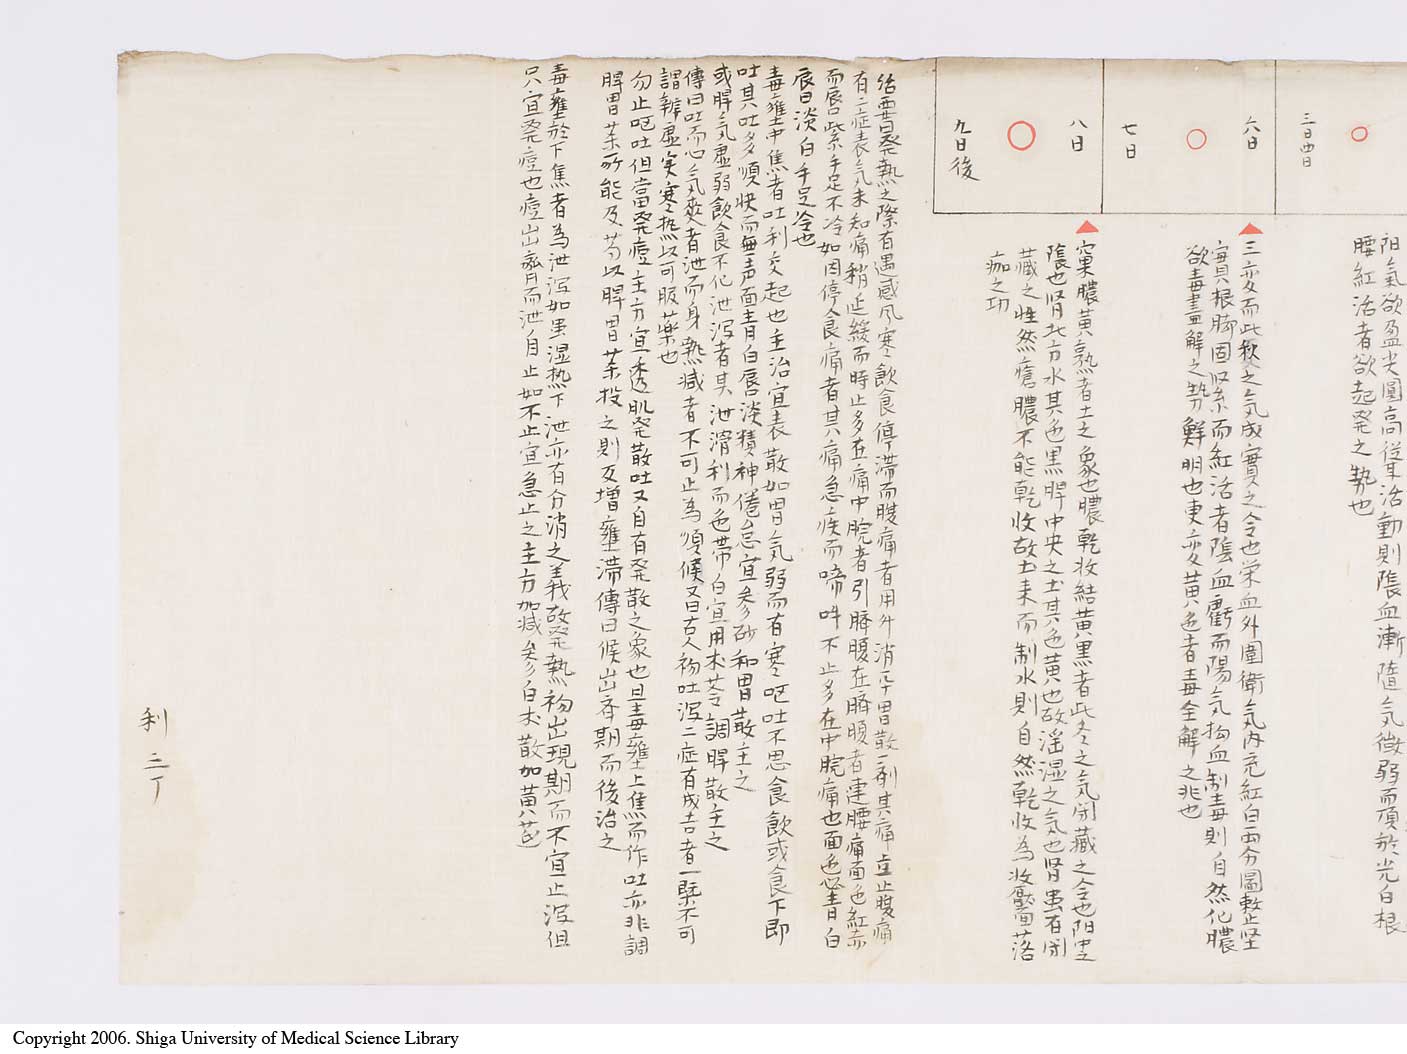 三日四日
陽氣欲盈尖圓高從耳活動則陰血漸隨气微弱而頂於光白根
腰紅活者欲起発之勢也
六日
七日
三変而此秋之気成實之令也栄血外圍衛気内充紅白両分圖整堅
實根脚固収糸而紅活者陰血虧而陽气拘血制毒則自然化膿
欲毒盡解之勢鮮明也更変黄色者毒全解之兆也
八日
九日後
窠膿黄熟者土之象也膿乾收結黄黒者此冬之気閉藏之令也陽中之
陰也腎北方水其色黒脾中央之土其色黄也故淫湿之気也腎虽有閉
藏之性然瘡膿不能乾收故土来而制水則自然乾收為收靨落
痂之功
治要曰発熱之際有遇感风寒飲食停滞而腹痛者用升消平胃散一剤其痛立止腹痛
有二症表气未和痛稍近緩而時止多在痛中脘者引臍腹在臍腹者連腰痛面色紅赤
而唇紫手足不冷如因停食痛者其痛急疾而啼叫不止多在中脘痛也面色必青白
唇曰淡白手足冷也
毒壅中焦者吐利交起也主治宜表散如胃気弱而有寒呕吐不思食飲或食下即
吐其吐多順快而無声面青白唇淡精神倦怠宜参砂和胃散主之
或脾気虚弱飲食不化泄泻者其泄滑利而色帯白宜用朮苓調脾散主之
傳曰吐而心气爽者泄而身熱減者不可止為順候又曰古人初吐泻二症有成吉者一槩不可
謂辨虚实寒热以可服藥也
勿止呕吐但當発痘主方宜透肌発散吐又自有発散之象也且毒壅上焦而作吐亦非調
脾胃薬所能及芍以脾胃薬投之則反增壅滞傳曰候出斉期而後治之
毒壅於下焦者為泄泻如虽湿热下泄亦有分消之義故発熱初出現期而不宜止泻但
只宜発痘也痘出齊而泄自止如不止宜急止之主方加減参白朮散加黄芪
利三丁
Copyright 2006. Shiga University of Medical Science Library